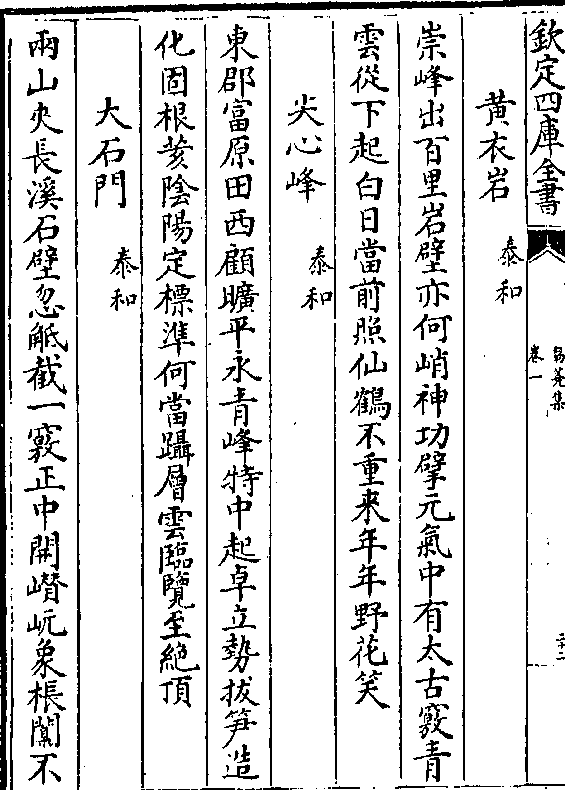 欽定四庫全書
芻蕘集
卷一
二十二
黃衣岩 泰和
崇峰出百里岩壁亦何峭神功擘元氣中有太古竅青
雲從下起白日當前照仙鶴不重来年年野花笑
尖心峰 泰和
東郡富原田西顧曠平永青峰特中起卓立勢拔笋造
化固根荄陰陽定標準何當躡層雲臨覽至絶頂
大石門 泰和
兩山夾長溪石壁忽觝截一竅正中開㠝岏象棖闑不